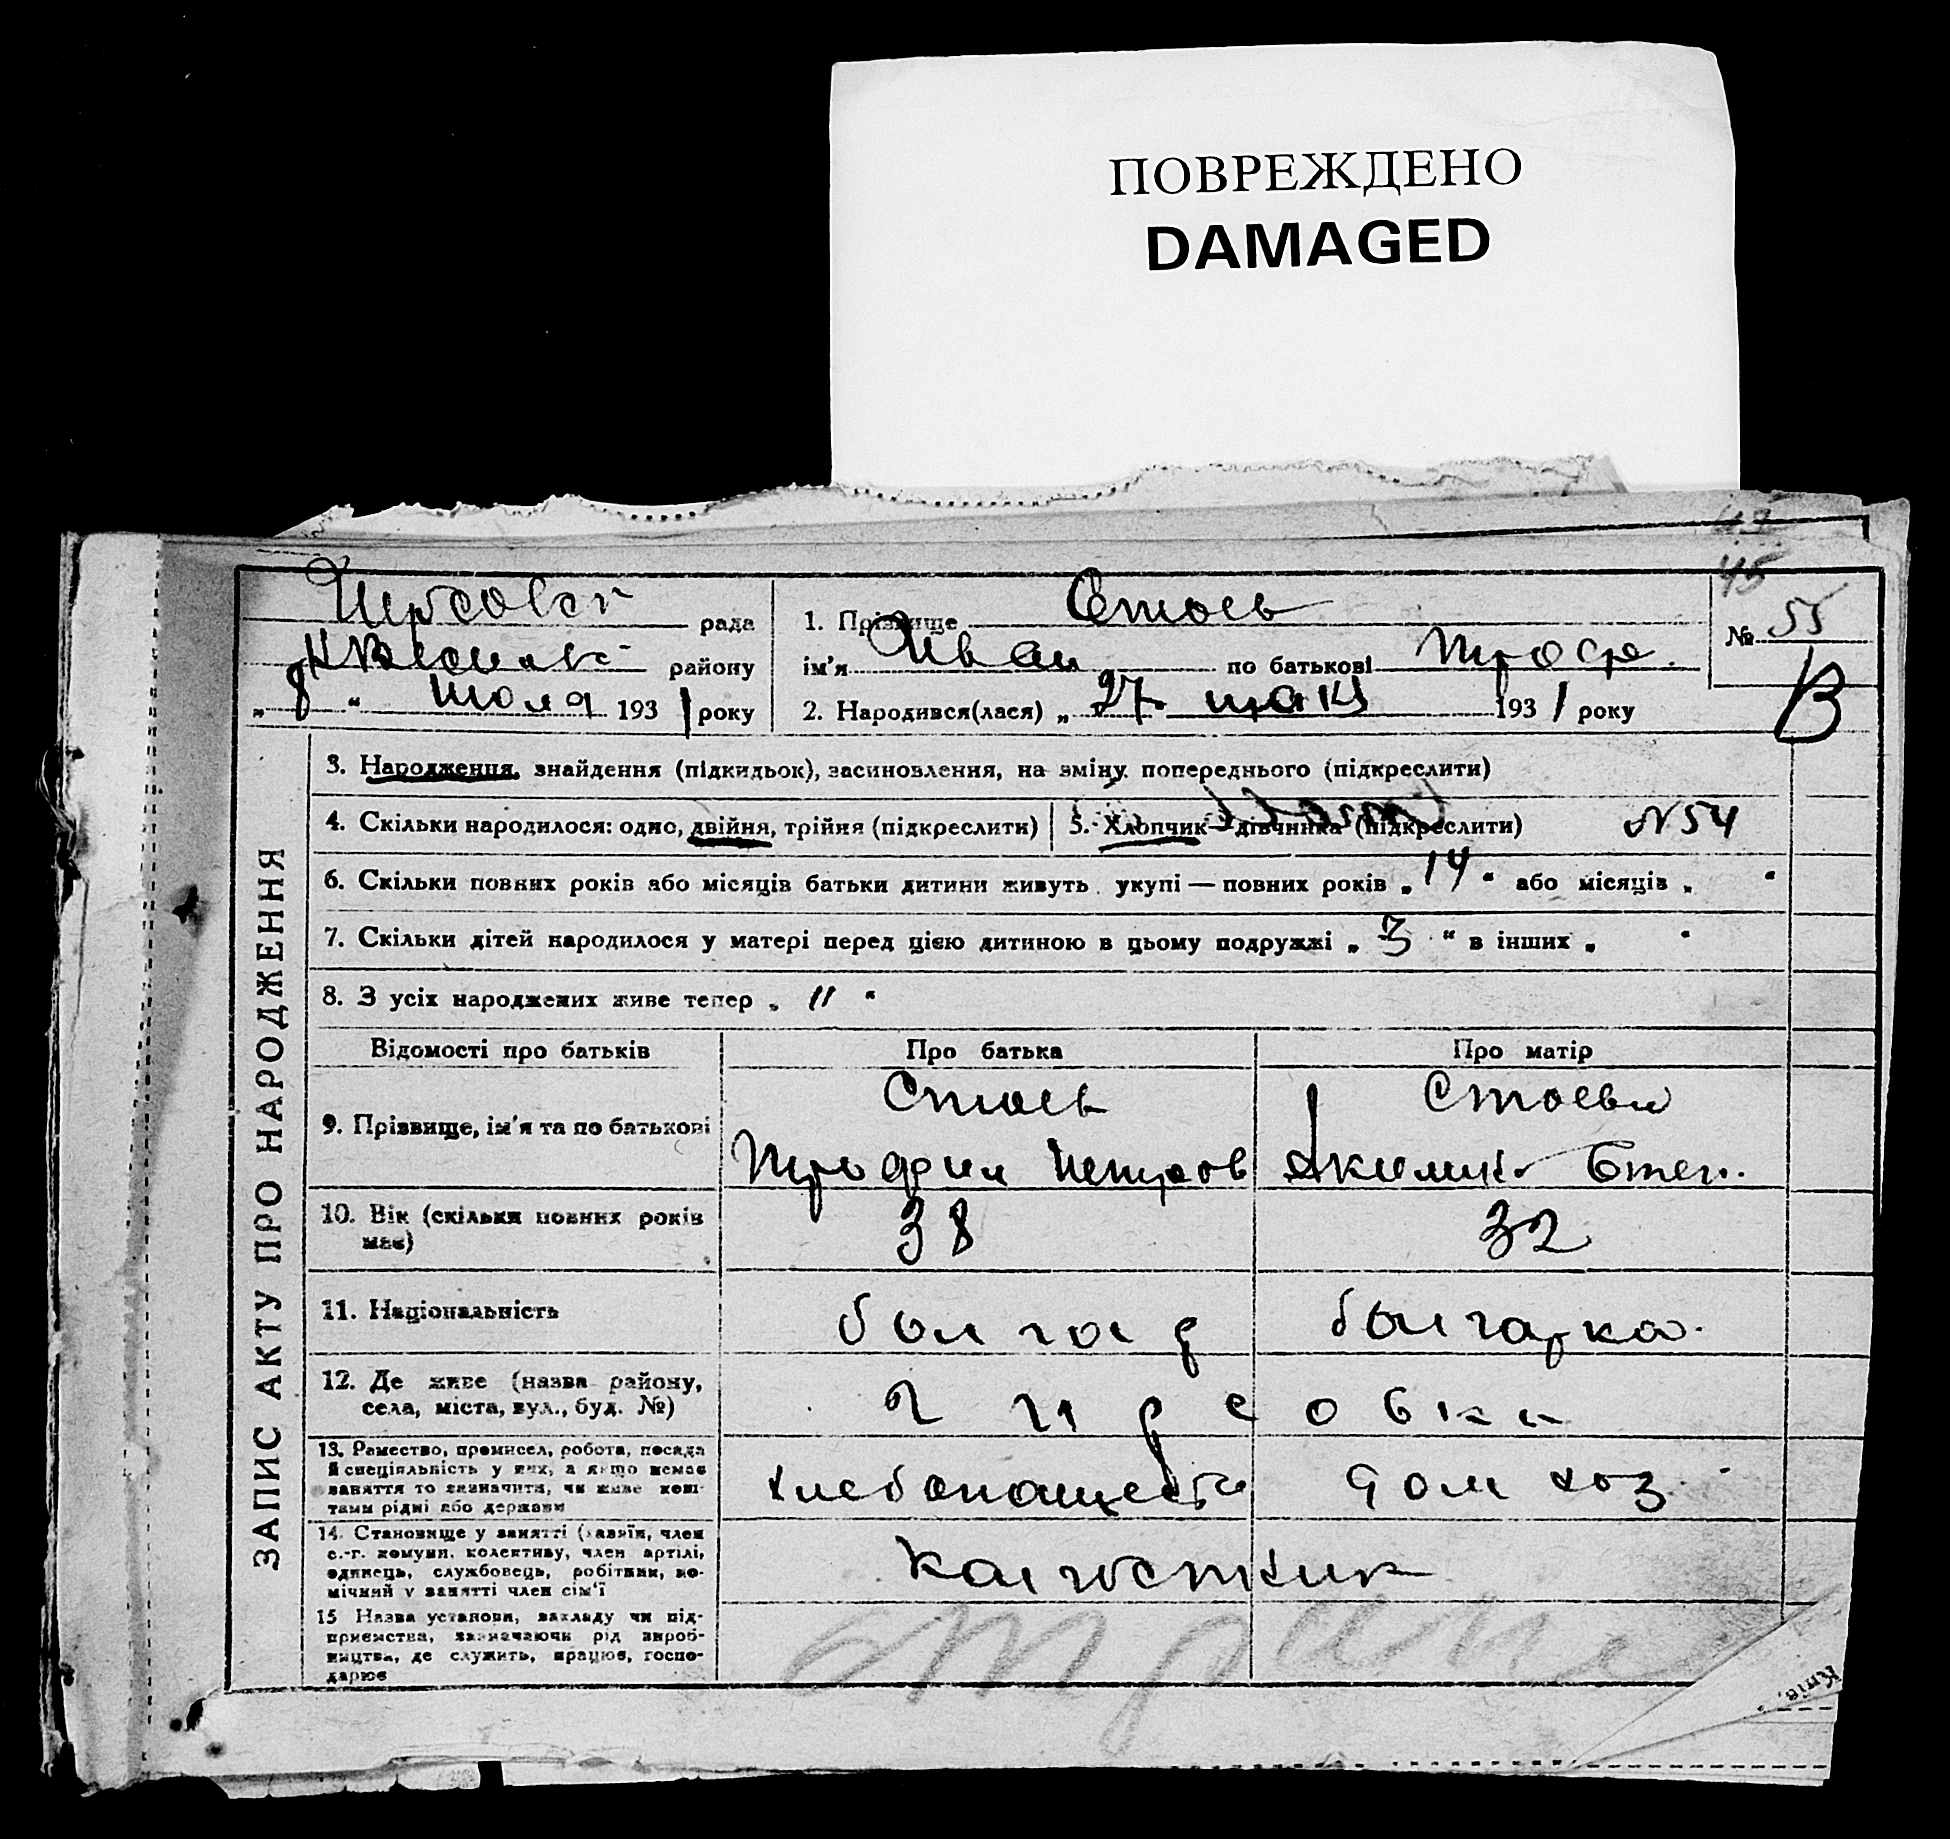 ПОВРЕЖДЕНО
DAMAGED
45
рада
району
„ 8 “ июля 1931 року
1. Прізвище Стоев
ім'я Иван по батькові Троф.
2. Народився(лася) „ 27 мая 1931 року
№ 55
В
ЗАПИС АКТУ ПРО НАРОДЖЕННЯ
3. Народження, знайдення (підкидьок), засиновлення, на зміну попереднього (підкреслити)
4. Скільки народилося: одно, двійня, трійня (підкреслити)
5. Хлопчик—дівчинка (підкреслити) N 54
6. Скільки повних років або місяців батьки дитини живуть укупі — повних років „ 14 “ або місяців „ “
7. Скільки дітей народилося у матері перед цією дитиною в цьому подружжі „ 3 “ в інших „ “
8. З усіх народжених живе тепер „ “
Відомості про батьків Про батька Про матір
9. Прізвище, ім'я та по батькові
Стоев
Трофим Петров
Стоева
Степ.
10. Вік (скільки повних років має)
38 32
11. Національність
болгар болгарка
12. Де живе (назва району,
села, міста, вул., буд. №)
13. Ремество, промисел, робота, посада
й спеціяльність у них, а якщо немає
заняття то зазначити, чи живе кош-
тами рідні або держави
хлебопашество дом хоз.
14. Становище у занятті (хазяїн, член
с.-г. комуни, колективу, член артілі,
одинець, службовець, робітник, по-
мічний у занятті член сім'ї
15 Назва установи, закладу чи під-
приємства, зазначаючи рід вироб-
ництва, де служить, працює, госпо-
дарює
Київ,